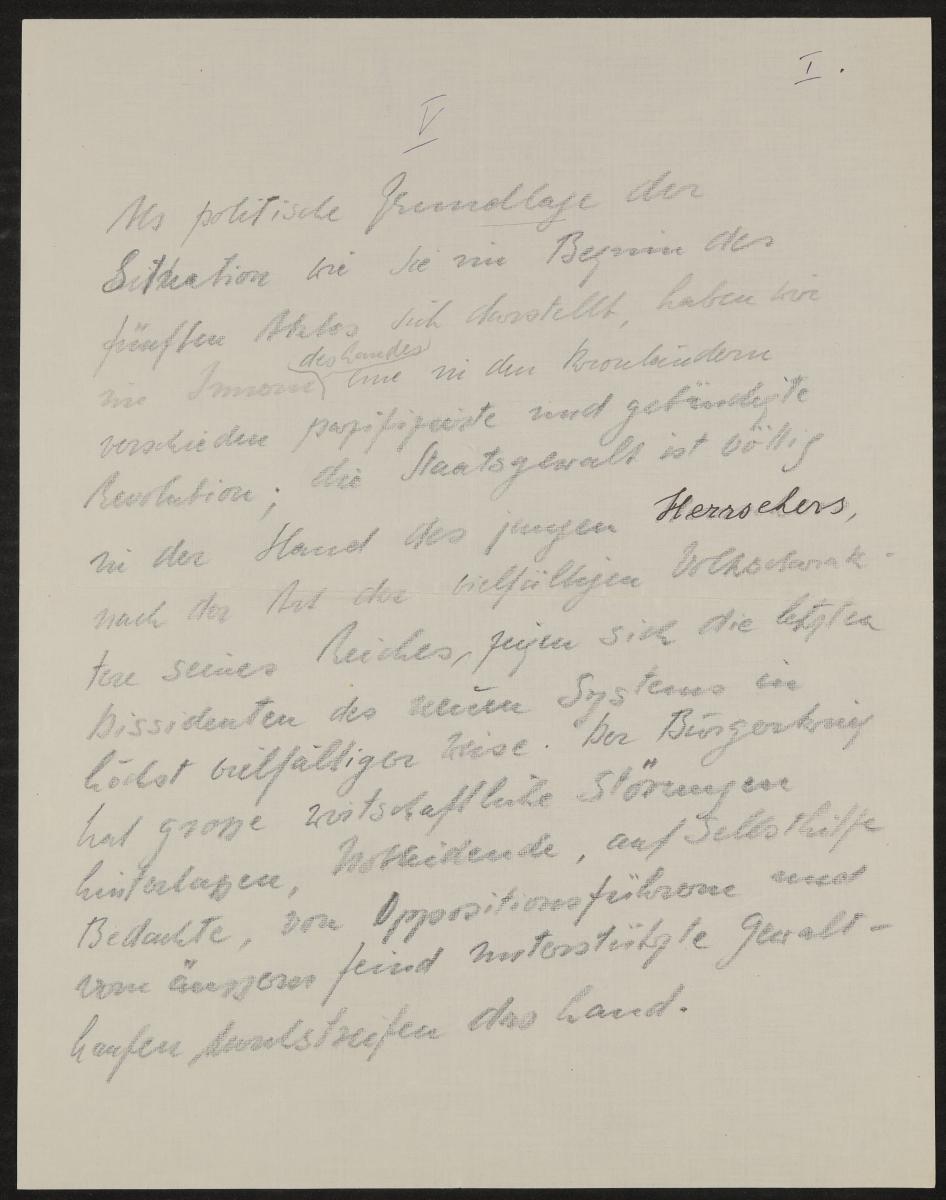 I.
V
Als politische Grundlage der
Situation wie sie im Beginn des
fünften Aktes sich darstellt, haben wir
des Landes
im Innern eine in den Kronländern
verschieden pazifizierte und gebändigte
Revolution; die Staatsgewalt ist völlig
in der Hand des jungen Herrschers,
nach der Art der vielfältigen Volkscharak-
tere seines Reiches, zeigen sich die letzten
Dissidenten des neuen Systems in
höchst vielfältiger Weise. Der Bürgerkrieg
hat grosse wirtschaftliche Störungen
hinterlassen, Notleidende, auf Selbsthilfe
Bedachte, von Oppositionsführern und
vom äussern Feind unterstützte Gewalt-
haufen durchstreifen das Land.